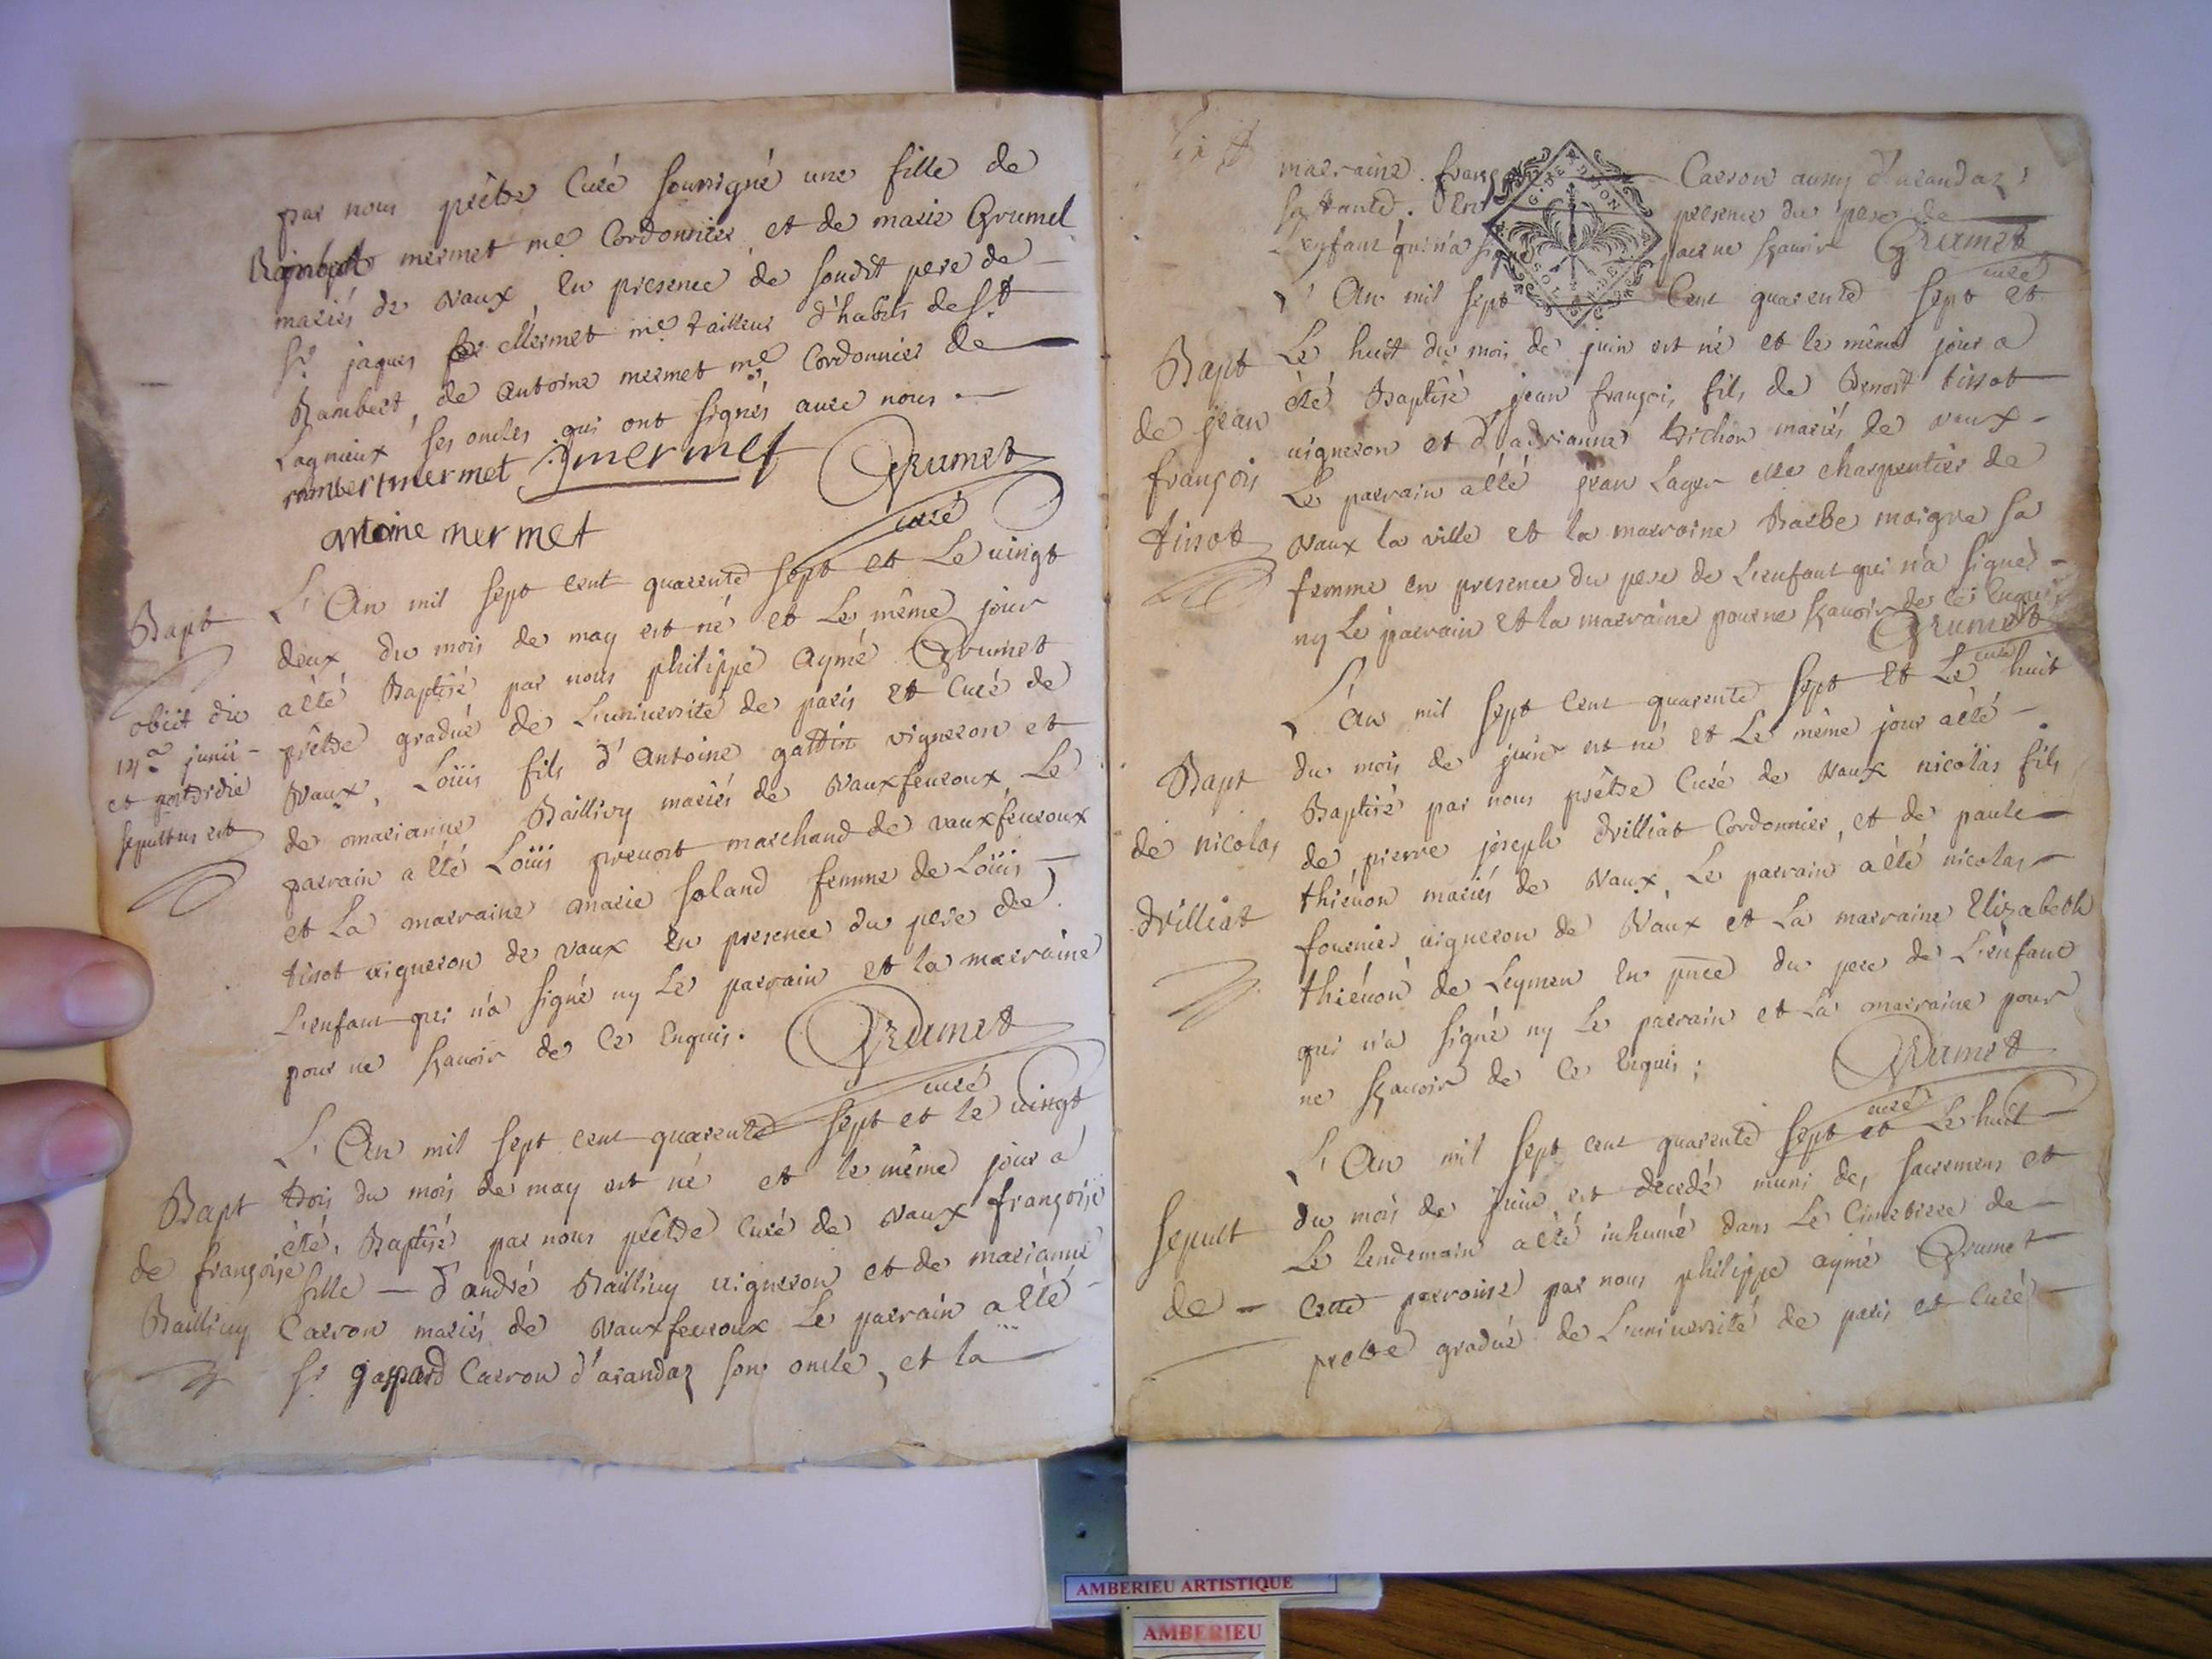 par nous prêtre Curé soussigné une fille de
mermet me Cordonnier et de marie Grumel
mariés de Vaux, En presence de soudit pere de
Sr jaques Mermet me tailleur d'habits de St
Rambert, de Antoine mermet me Cordonnier de
Lagnieux ses oncles qui ont signés avec nous.
rambert mermet jmermet Grumet
curé
antoine mermet
Bapt
obiit die
junii
et postridie
sepultus est
L'An mil sept cent quarente sept et Le vingt
deux du mois de may est né et Le même jour
a été Baptisé par nous philippe Aymé Grumet
prêtre gradué de L'université de paris et Curé de
Vaux, Loüis fils d'Antoine gattin vigneron et
de marianne Baillivy mariés de Vauxfevroux Le
parrain a été Loüis prevost marchand de vauxfévroux
et La marraine marie soland femme de Loüis
tissot vigneron de vaux En presence du pere de
L'enfant qui n'a signé ny Le parrain et la marraine
pour ne sçavoir de Ce Enquis. Grumet
curé
Bapt
de françoise
Baillivy
L'An mil sept cent quarente sept et le vingt
trois du mois de may est né et le même jour a
été, Baptisé par nous prêtre Curé de Vaux françoise
fille — d'andré Baillivy vigneron et de marianne
Carron mariés de Vauxfevroux Le parrain a été
Sr gaspard Carron d'arandaz son oncle, et la
marraine. franç Carron aussy d'arandaz
sa tante. En presence du pere de
L'enfant qui n'a signé pour ne sçavoir Grumet
curé
Bapt
de jean
françois
tissot
L'An mil sept Cent quarente sept et
Le huit du mois de juin est né et le même jour a
été Baptisé jean françois fils de Benoit tissot
vigneron et d'adrianne trichon mariés de vaux
Le parrain a été jean Lager me charpentier de
Vaux la ville et la marraine Barbe maigre sa
femme en presence du pere de L'enfant qui n'a signés
ny Le parrain et la marraine pour ne sçavoir de ce Enquis
Grumet
curé
Bapt
de nicolas
drilliat
L'An mil sept cent quarente sept et Le huit
du mois de juin est né et Le même jour a été
Baptisé par nous prêtre Curé de Vaux nicolas fils
de pierre joseph drilliat Cordonnier, et de paule
thiévon mariés de Vaux, Le parrain a été nicolas
fournier vigneron de Vaux et La marraine Elizabeth
thiévon de Leymen En pnce du pere de L'enfant
qui n'a signé ny Le parrain et La marraine pour
ne sçavoir de Ce Enquis; Grumet
curé
Sepult
de
L'An mil sept cent quarente sept et Le huit
du mois de juin est decedé muni des sacremens et
Le lendemain a été inhumé dans Le Cimetiere de
Cette parroisse par nous philippe aymé Grumet
pretre gradué de L'université de paris et Curé
AMBERIEU ARTISTIQUE
AMBERIEU